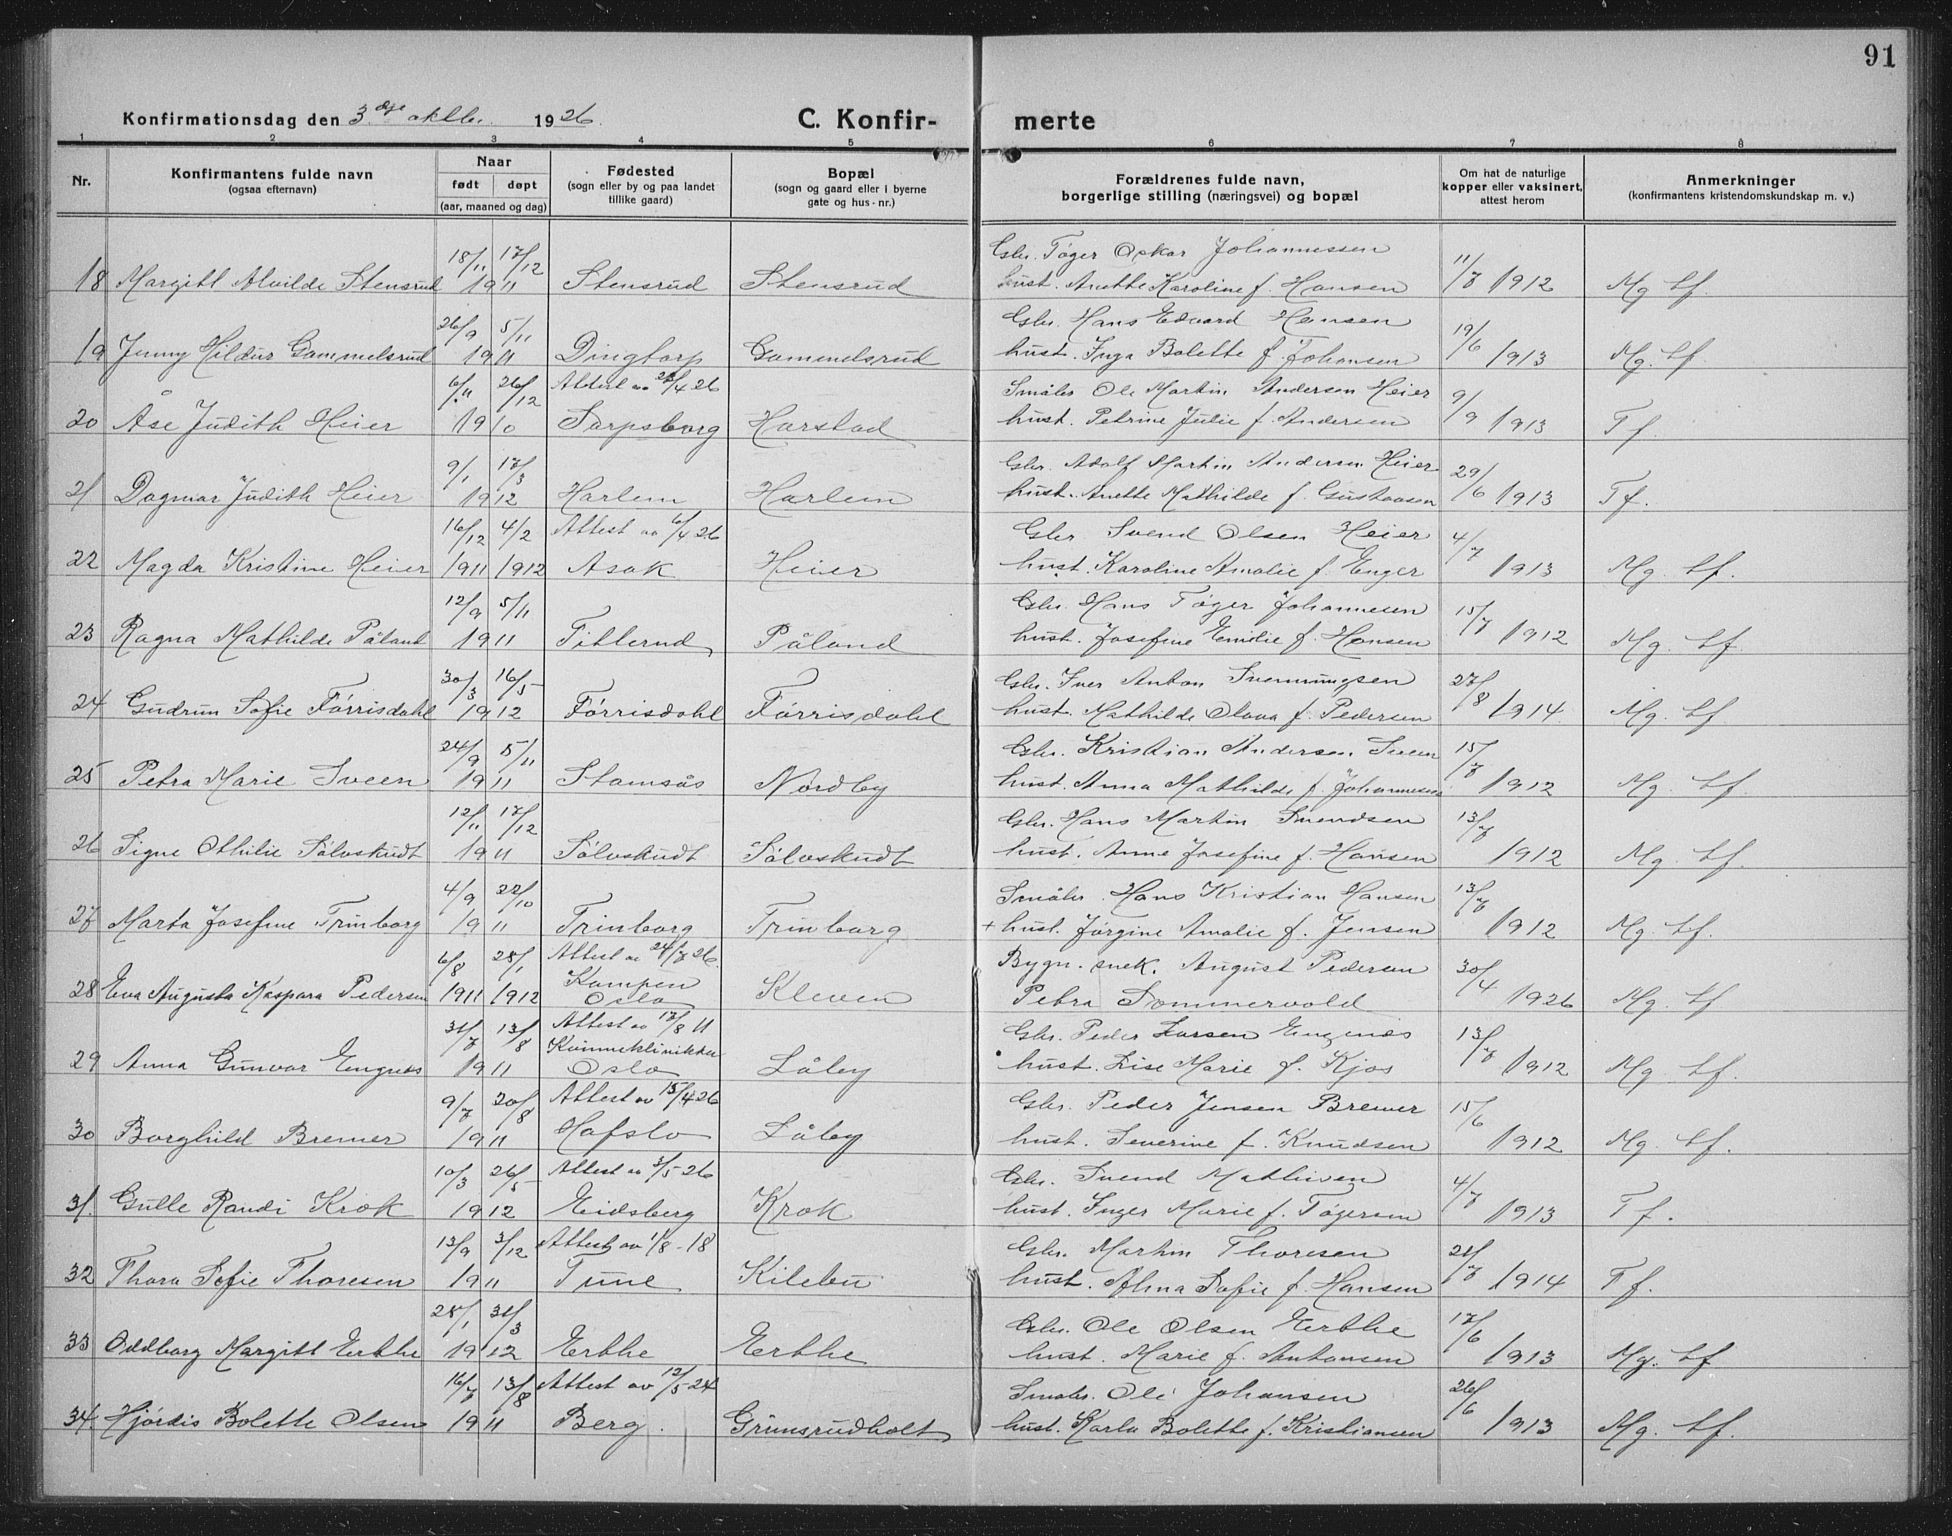 91
Konfirmationsdag den 3dje oktbr. 1926. C. Konfirmerte
1 2 3 4 5 6 7 8
Nr. Konfirmantens fulde navn (ogsaa efternavn) Naar født døpt (aar, maaned og dag) Fødested (sogn eller by og paa landet tillike gaard) Bopæl (sogn og gaard eller i byerne gate og hus-nr.) Forældrenes fulde navn, borgerlige stilling (næringsvei) og bopæl Om hat de naturlige kopper eller vaksinert, attest herom Anmerkninger (konfirmantens kristendomskundskap m. v.)
18/11 17/12 Gbr. Tøger Oskar Johannessen 11/7
18 Margitt Alvilde Stensrud 1911 Stensrud Stensrud hust. Anette Karoline f. Hansen 1912 Mg. tf.
26/9 5/11 Gbr. Hans Edvard Hansen 19/6
19 Jenny Hildur Gammelsrud 1911 Dingtorp Gammelsrud hust. Inga Bolette f. Johansen 1913 Mg. tf.
6/11 26/12 Attest av 4 26 Småbr. Ole Martin Andersen Heier 9/9
20 Åse Judith Heier 1910 Sarpsborg Harstad hust. Petrine Julie f. Andersen 1913 Tf.
9/1 17/3 Gbr. Adolf Martin Andersen Heier 29/6
21 Dagmar Judith Heier 1912 Harlem Harlem hust. Anette Mathilde f. Gustavsen 1913 Tf.
16/12 4/2 Attest av 6/4 26 Gbr. Svend Olsen Heier 4/7
22 Magda Kristine Heier 1911 1912 Asak Heier hust. Karoline Amalie f. Enger 1913 Mg. tf.
12/9 5/11 Gbr. Hans Tøger Johannesen 15/7
23 Ragna Mathilde Påland 1911 Titlerud Påland hust. Josefine Emilie f. Hansen 1912 Mg. tf.
30/3 16/5 Gbr. Iver Anton Svenningsen 27/8
24 Gudrun Sofie Førrisdahl 1912 Førrisdahl Førrisdahl hust. Mathilde Olava f. Pedersen 1914 Mg. tf
24/9 5/11 Gbr. Kristian Andersen Sveen 15/7
25 Petra Marie Sveen 1911 Stamsås Nordby hust. Anna Mathilde f. Johannesen 1912 Mg. tf
12/11 17/12 Gbr. Hans Martin Svendsen 13/7
26 Signe Othilie Sølvskudt 1911 Sølvskudt Sølvskudt hust. Anne Josefine f. Hansen 1912 Mg. tf.
4/9 22/10 Småbr. Hans Kristian Hansen 13/7
27 Marta Josefine Trinborg 1911 Trinborg Trinborg + hust. Jørgine Amalie f. Jensen 1912 Mg. tf.
6/8 28/1 Attest av 24/7 26. Bygn. snek. August Pedersen 30/4
28 Eva Augusta Kaspara Pedersen 1911 1912 Kampen Oslo Kleven Petra Sommervold 1926 Mg. tf
31/7 13/8 Attest av 17/8 11 Gbr. Peder Larsen Engenes 13/7
29 Anna Gunvor Engnes 1911 Kvinneklinikken Oslo Låby hust. Lise Marie f. Kjos 1912 Mg. tf.
9/7 20/8 Attest av 15/4 26 Gbr. Peder Jensen Bremer 15/6
30 Borghild Bremer 1911 Hafslo Låby hust. Severine f. Knudsen 1912 Mg. tf.
10/3 26/5 Attest av 3/5-26 Gbr. Svend Mathisen 4/7
31. Gulle Randi Krok 1912 Eidsberg Krok hust. Inger Marie f. Tøgersen 1913 Tf.
13/9 3/12 Attest av 1/8-18 Gbr. Martin Thoresen 21/7
32 Thora Sofie Thoresen 1911 Tune Kilebu hust. Alma Sofie f. Hansen 1914 Tf.
28/1 31/3 Gbr. Ole Olsen Ertthe 17/6
33 Oddborg Margitt Ertthe 1912 Ertthe Ertthe hust. Marie f. Antonsen 1913 Mg. tf
16/7 13/8 Attest av 12/5-24 Småbr. Ole Johansen 26/6
34. Hjørdis Bolette Olsen 1911 Berg. Grimsrudholt hust. Karla Bolette f. Kristiansen 1913 Mg. tf.